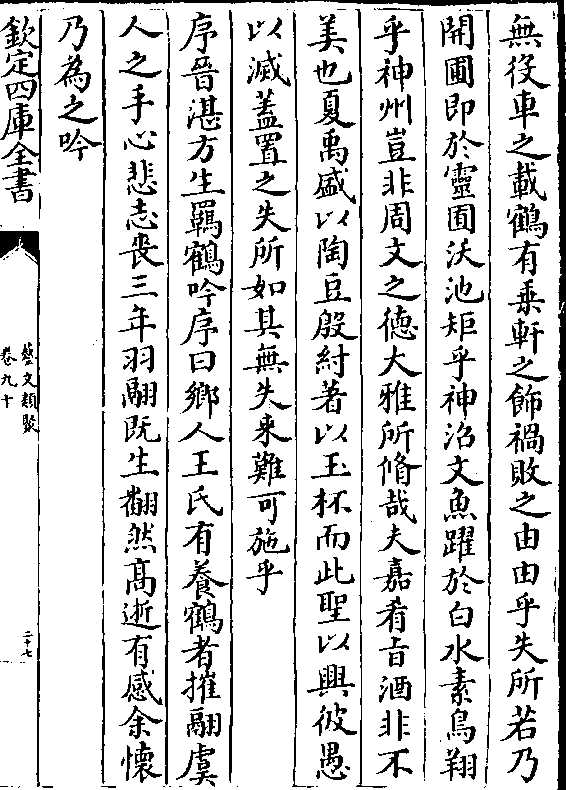 無役車之載鶴有乗軒之飾禍敗之由由乎失所若乃
開圃即於靈囿沃池矩乎神沼文魚躍於白水素鳥翔
乎神州豈非周文之徳大雅所脩哉夫嘉肴旨酒非不
美也夏禹盛以陶豆殷紂著以玉杯而此聖以興彼愚
以滅蓋置之失所如其無失来難可施乎
序晉湛方生羈鶴吟序曰鄉人王氏有養鶴者摧翮虞
人之手心悲志喪三年羽翮既生翻然髙逝有感余懷
乃為之吟
欽定四庫全書
藝文類聚
卷九十
二十七